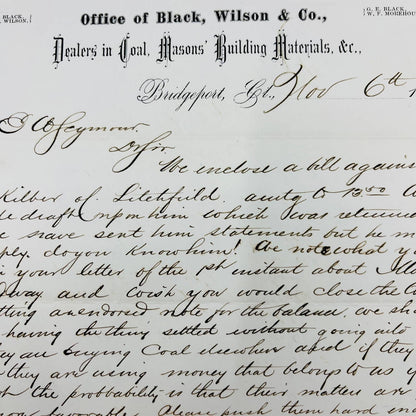 BLACK,
WILSON.
G. E. BLACK,
W. F. MOREHOUSE
Office of Black, Wilson & Co.,
Dealers in Coal, Masons' Building Materials, &c.,
Bridgeport, Ct., Nov 6th 1
Seymour.
Dr Sir
We enclose a bill against
Kilber of Litchfield, amtg to 13.00
draft upon him which was returned
have sent him statements but he
do you know him! We note what
your letter of the 1st instant about
and wish you would close the
an endorsed note for the balance. we
having the thing settled without going into
are buying Coal elsewhere and if they
they are using money that belongs to us
the probbability is that their matters are
favorable. Please push them hard